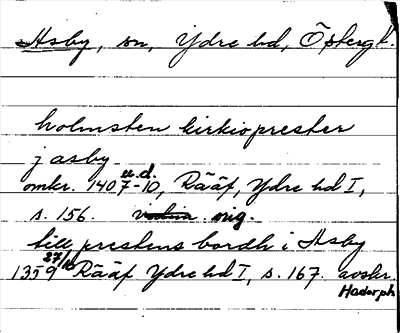 Asby, sn, Ydre hd, Östergk.
holmsten kirkioprester
j asby
omkr. 1407-10, u.d. Rääf, Ydre hd I,
s. 156. orig.
till prestens bordh i Asby
1359 27/10 Rääf Ydre hd I, s. 167. avskr.
Hadorph